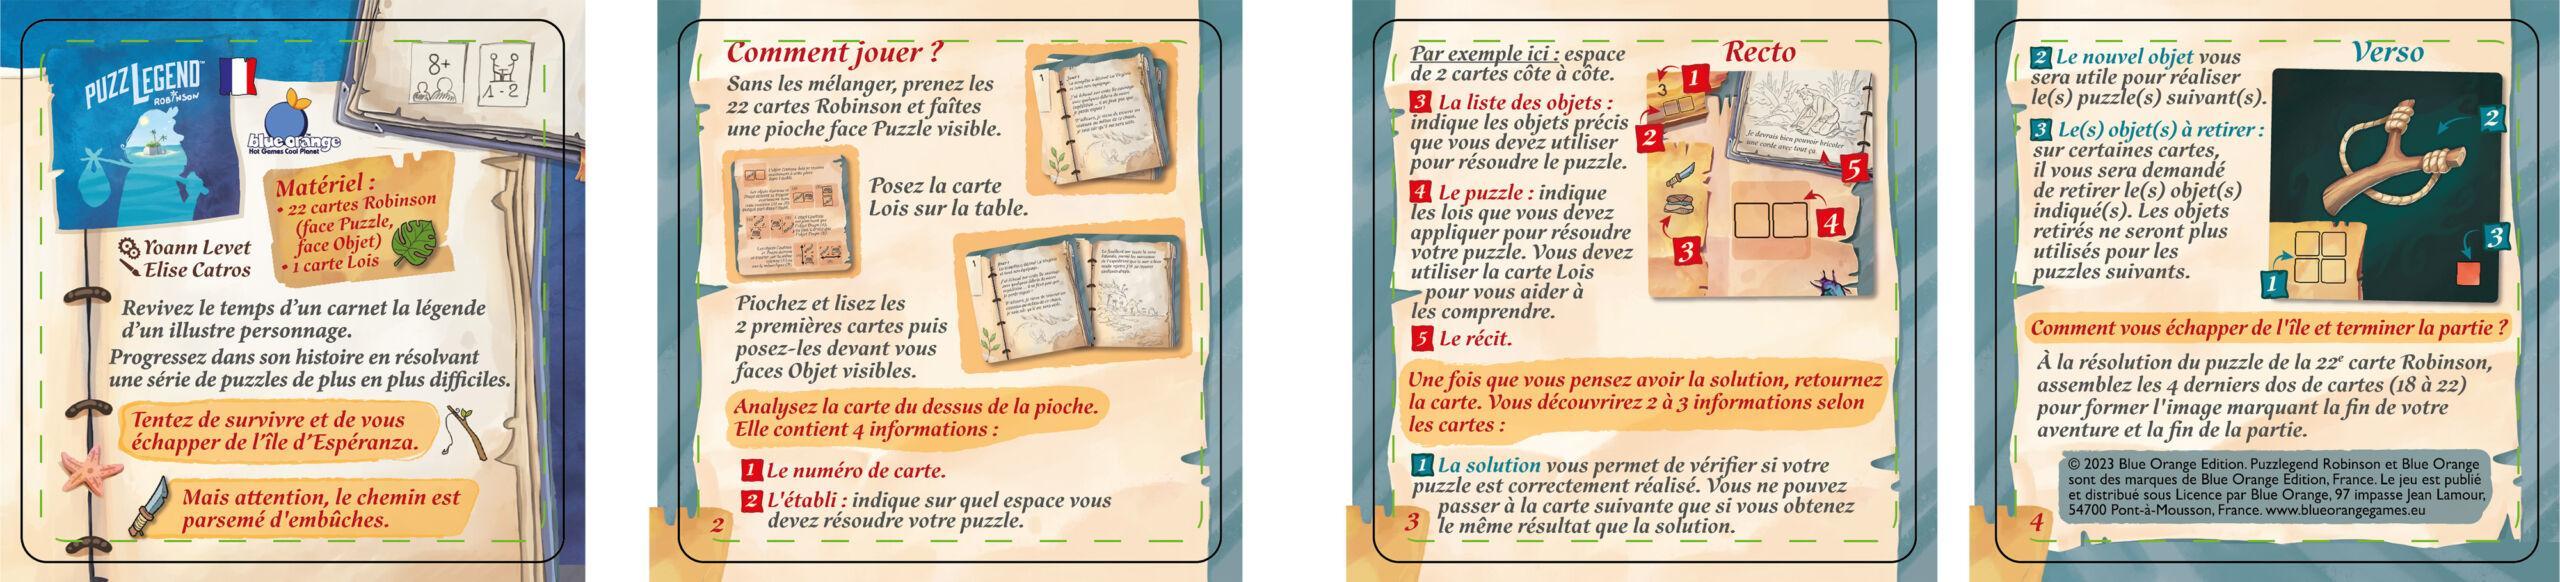 PUZZLEGEND™
ROBINSON
8+
1-2
blue orange
Hot Games Cool Planet
Matériel :
• 22 cartes Robinson
(face Puzzle,
face Objet)
• 1 carte Lois
Yoann Levet
Elise Catros
Revivez le temps d’un carnet la légende
d’un illustre personnage.
Progressez dans son histoire en résolvant
une série de puzzles de plus en plus difficiles.
Tentez de survivre et de vous
échapper de l’île d’Espéranza.
Mais attention, le chemin est
parsemé d'embûches.
Comment jouer ?
Sans les mélanger, prenez les
22 cartes Robinson et faîtes
une pioche face Puzzle visible.
Posez la carte
Lois sur la table.
Piochez et lisez les
2 premières cartes puis
posez-les devant vous
faces Objet visibles.
Analysez la carte du dessus de la pioche.
Elle contient 4 informations :
1 Le numéro de carte.
2 L'établi : indique sur quel espace vous
devez résoudre votre puzzle.
2
Par exemple ici : espace
de 2 cartes côte à côte.
3 La liste des objets :
indique les objets précis
que vous devez utiliser
pour résoudre le puzzle.
4 Le puzzle : indique
les lois que vous devez
appliquer pour résoudre
votre puzzle. Vous devez
utiliser la carte Lois
pour vous aider à
les comprendre.
5 Le récit.
Recto
1
3
2
Je devrais bien pouvoir bricoler
une corde avec tout ça.
5
4
3
Une fois que vous pensez avoir la solution, retournez
la carte. Vous découvrirez 2 à 3 informations selon
les cartes :
1 La solution vous permet de vérifier si votre
puzzle est correctement réalisé. Vous ne pouvez
passer à la carte suivante que si vous obtenez
le même résultat que la solution.
3
2 Le nouvel objet vous
sera utile pour réaliser
le(s) puzzle(s) suivant(s).
3 Le(s) objet(s) à retirer :
sur certaines cartes,
il vous sera demandé
de retirer le(s) objet(s)
indiqué(s). Les objets
retirés ne seront plus
utilisés pour les
puzzles suivants.
Verso
2
3
1
Comment vous échapper de l'île et terminer la partie ?
À la résolution du puzzle de la 22e carte Robinson,
assemblez les 4 derniers dos de cartes (18 à 22)
pour former l'image marquant la fin de votre
aventure et la fin de la partie.
© 2023 Blue Orange Edition. Puzzlegend Robinson et Blue Orange
sont des marques de Blue Orange Edition, France. Le jeu est publié
et distribué sous Licence par Blue Orange, 97 impasse Jean Lamour,
54700 Pont-à-Mousson, France. www.blueorangegames.eu
4